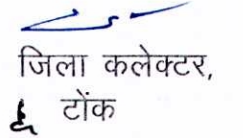 जिला कलेक्टर,
टोंक